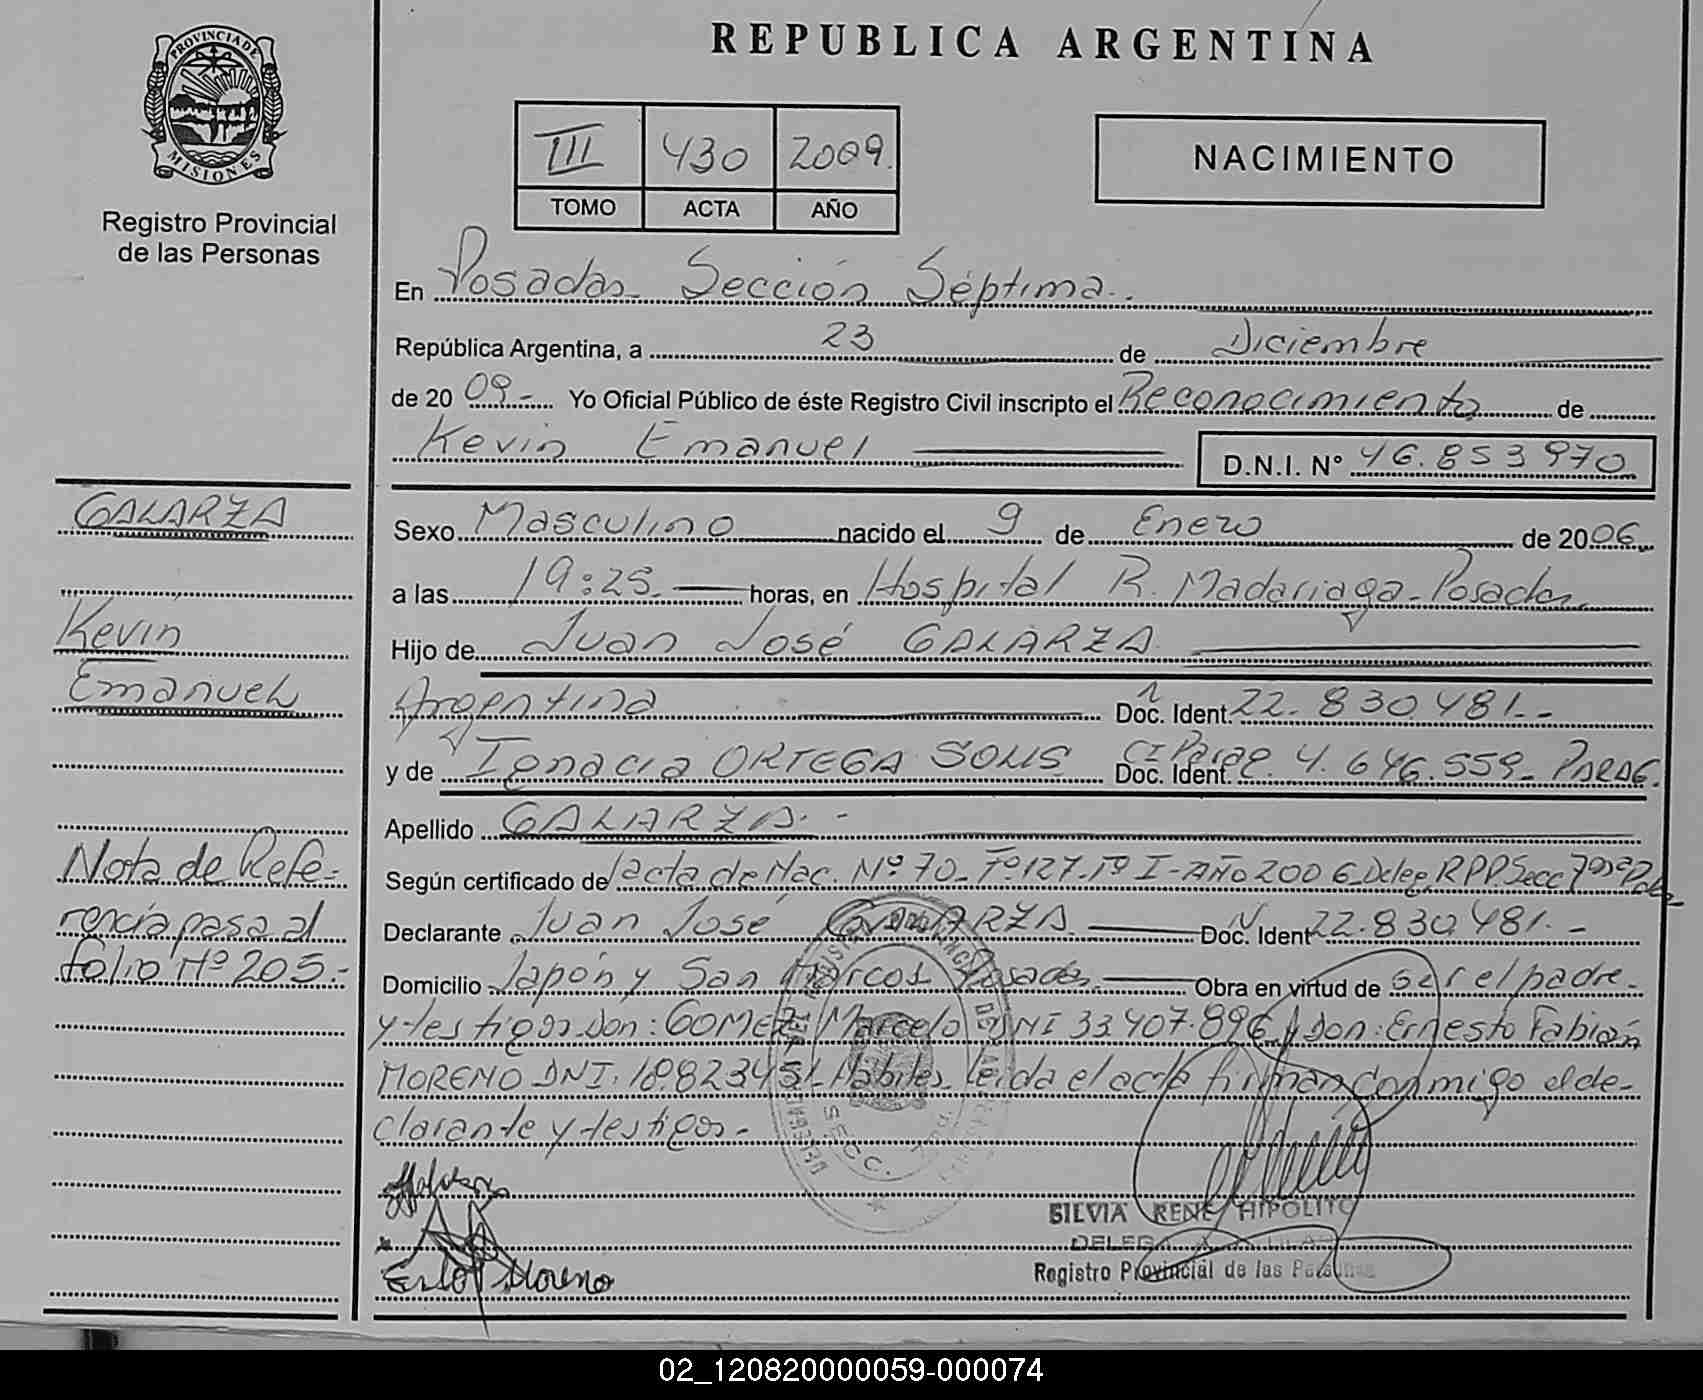 PROVINCIA DE
MISIONES
Registro Provincial
de las Personas
REPUBLICA ARGENTINA
III 430 2009.
TOMO ACTA AÑO
NACIMIENTO
En Posadas Sección Séptima.
República Argentina, a 23 de Diciembre
de 2009.- Yo Oficial Público de éste Registro Civil inscripto el Reconocimiento de
Kevin Emanuel D.N.I. N° 46.853970
GALARZA
Kevin
Emanuel
Nota de Refe-
rencia pasa al
folio Nº 205.-
Sexo Masculino nacido el 9 de Enero de 2006
a las 19:25. horas, en Hospital R. Madariaga - Posadas.
Hijo de Juan José GALARZA
Argentina Doc. Ident. 22.830.481.-
y de Ignacia ORTEGA SOLIS Doc. Ident. CI Parag. 4.646.559- PARAG.
Apellido GALARZA.-
Según certificado de acta de Nac. Nº 70- Fº 127- Tº I - AÑO 2006 Deleg RPP Secc 7
Declarante Juan José GALARZA Doc. Ident 22.830.481.-
Domicilio Japón y San Marcos Posadas Obra en virtud de ser el padre
y testigos Don: GOMEZ Marcelo DNI 33407.896 y Don: Ernesto Fabián
MORENO DNI. 18.823451 Hábiles Leida el acta firman conmigo el de-
clarante y testigos.-
SECC.
Moreno
SILVIA RENE HIPOLITO
Registro Provincial de las Personas
02_120820000059-000074